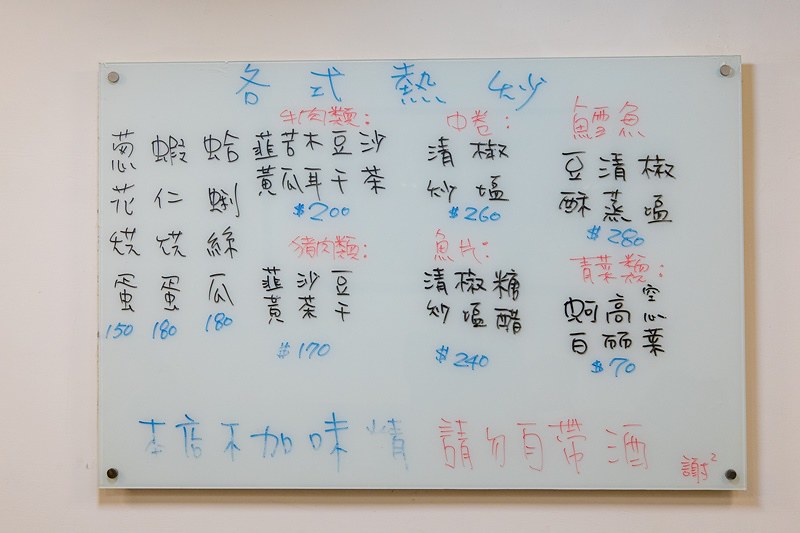 各式熱炒
葱花烘蛋
150
蝦仁烘蛋
180
蛤蜊絲瓜
180
牛肉類:
韮黃
苦瓜
木耳
豆干
沙茶
$200
豬肉類:
韮黃
沙茶
豆干
$170
中卷:
清炒
椒塩
$260
魚片:
清炒
椒塩
糖醋
$240
鱈魚
豆酥
清蒸
椒塩
$280
青菜類:
高丽
空心菜
$70
本店不加味精 請勿自帶酒
謝2